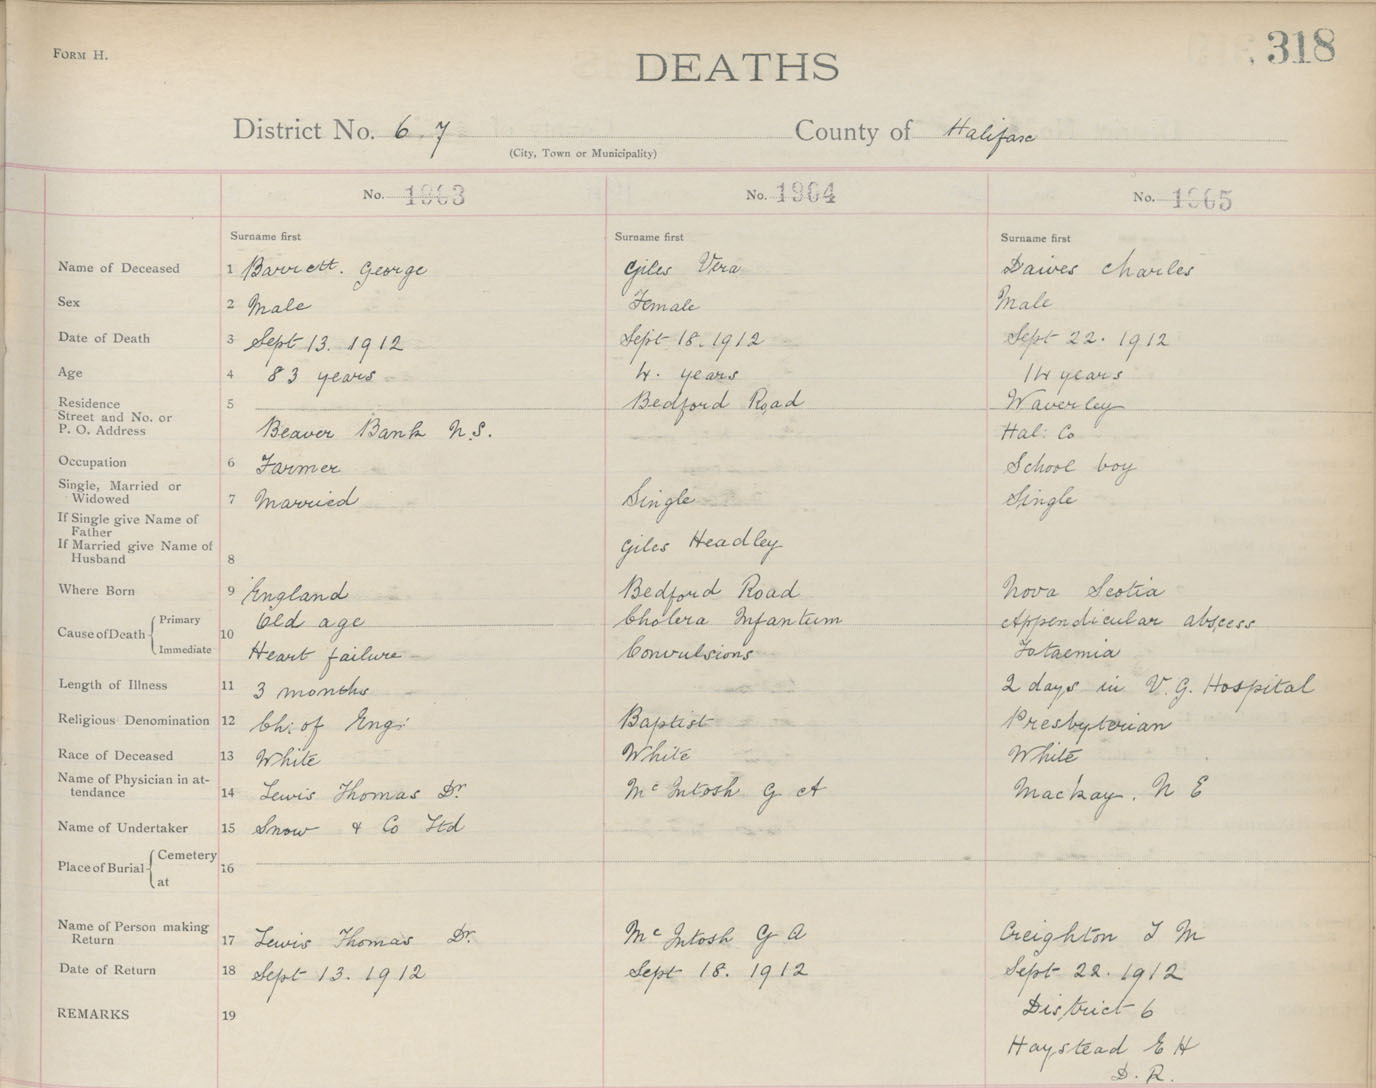 FORM H.
318
DEATHS
District No. 6. 7 County of Halifax
(City, Town or Municipality)
No. 1963 No. 1964 No. 1965
Surname first Surname first Surname first
Name of Deceased 1 Barrett. George Giles Vera Daives Charles
Sex 2 Male Female Male
Date of Death 3 Sept 13. 1912 Sept 18. 1912 Sept 22. 1912
Age 4 83 years 4. years 14 years
Residence 5 Bedford Road Waverley
Street and No. or
P. O. Address Beaver Bank N.S. Hal: Co
Occupation 6 Farmer School boy
Single, Married or
Widowed 7 Married Single Single
If Single give Name of
Father
If Married give Name of Giles Headley
Husband 8
Where Born 9 England Bedford Road Nova Scotia
Cause of Death Primary 10 Old age Cholera Infantum Appendicular abscess
Immediate Heart failure Convulsions
Length of Illness 11 3 months 2 days in V. G. Hospital
Religious Denomination 12 Ch: of Eng: Baptist Presbyterian
Race of Deceased 13 White White White
Name of Physician in at-
tendance 14 Lewis Thomas Dr. McIntosh G A Mackay. N E
Name of Undertaker 15 Snow & Co Ltd
Place of Burial Cemetery 16
at
Name of Person making
Return 17 Lewis Thomas Dr. McIntosh G A Creighton I M
Date of Return 18 Sept 13. 1912 Sept 18. 1912 Sept 22. 1912
REMARKS 19 District 6
Haystead E H
D. R.